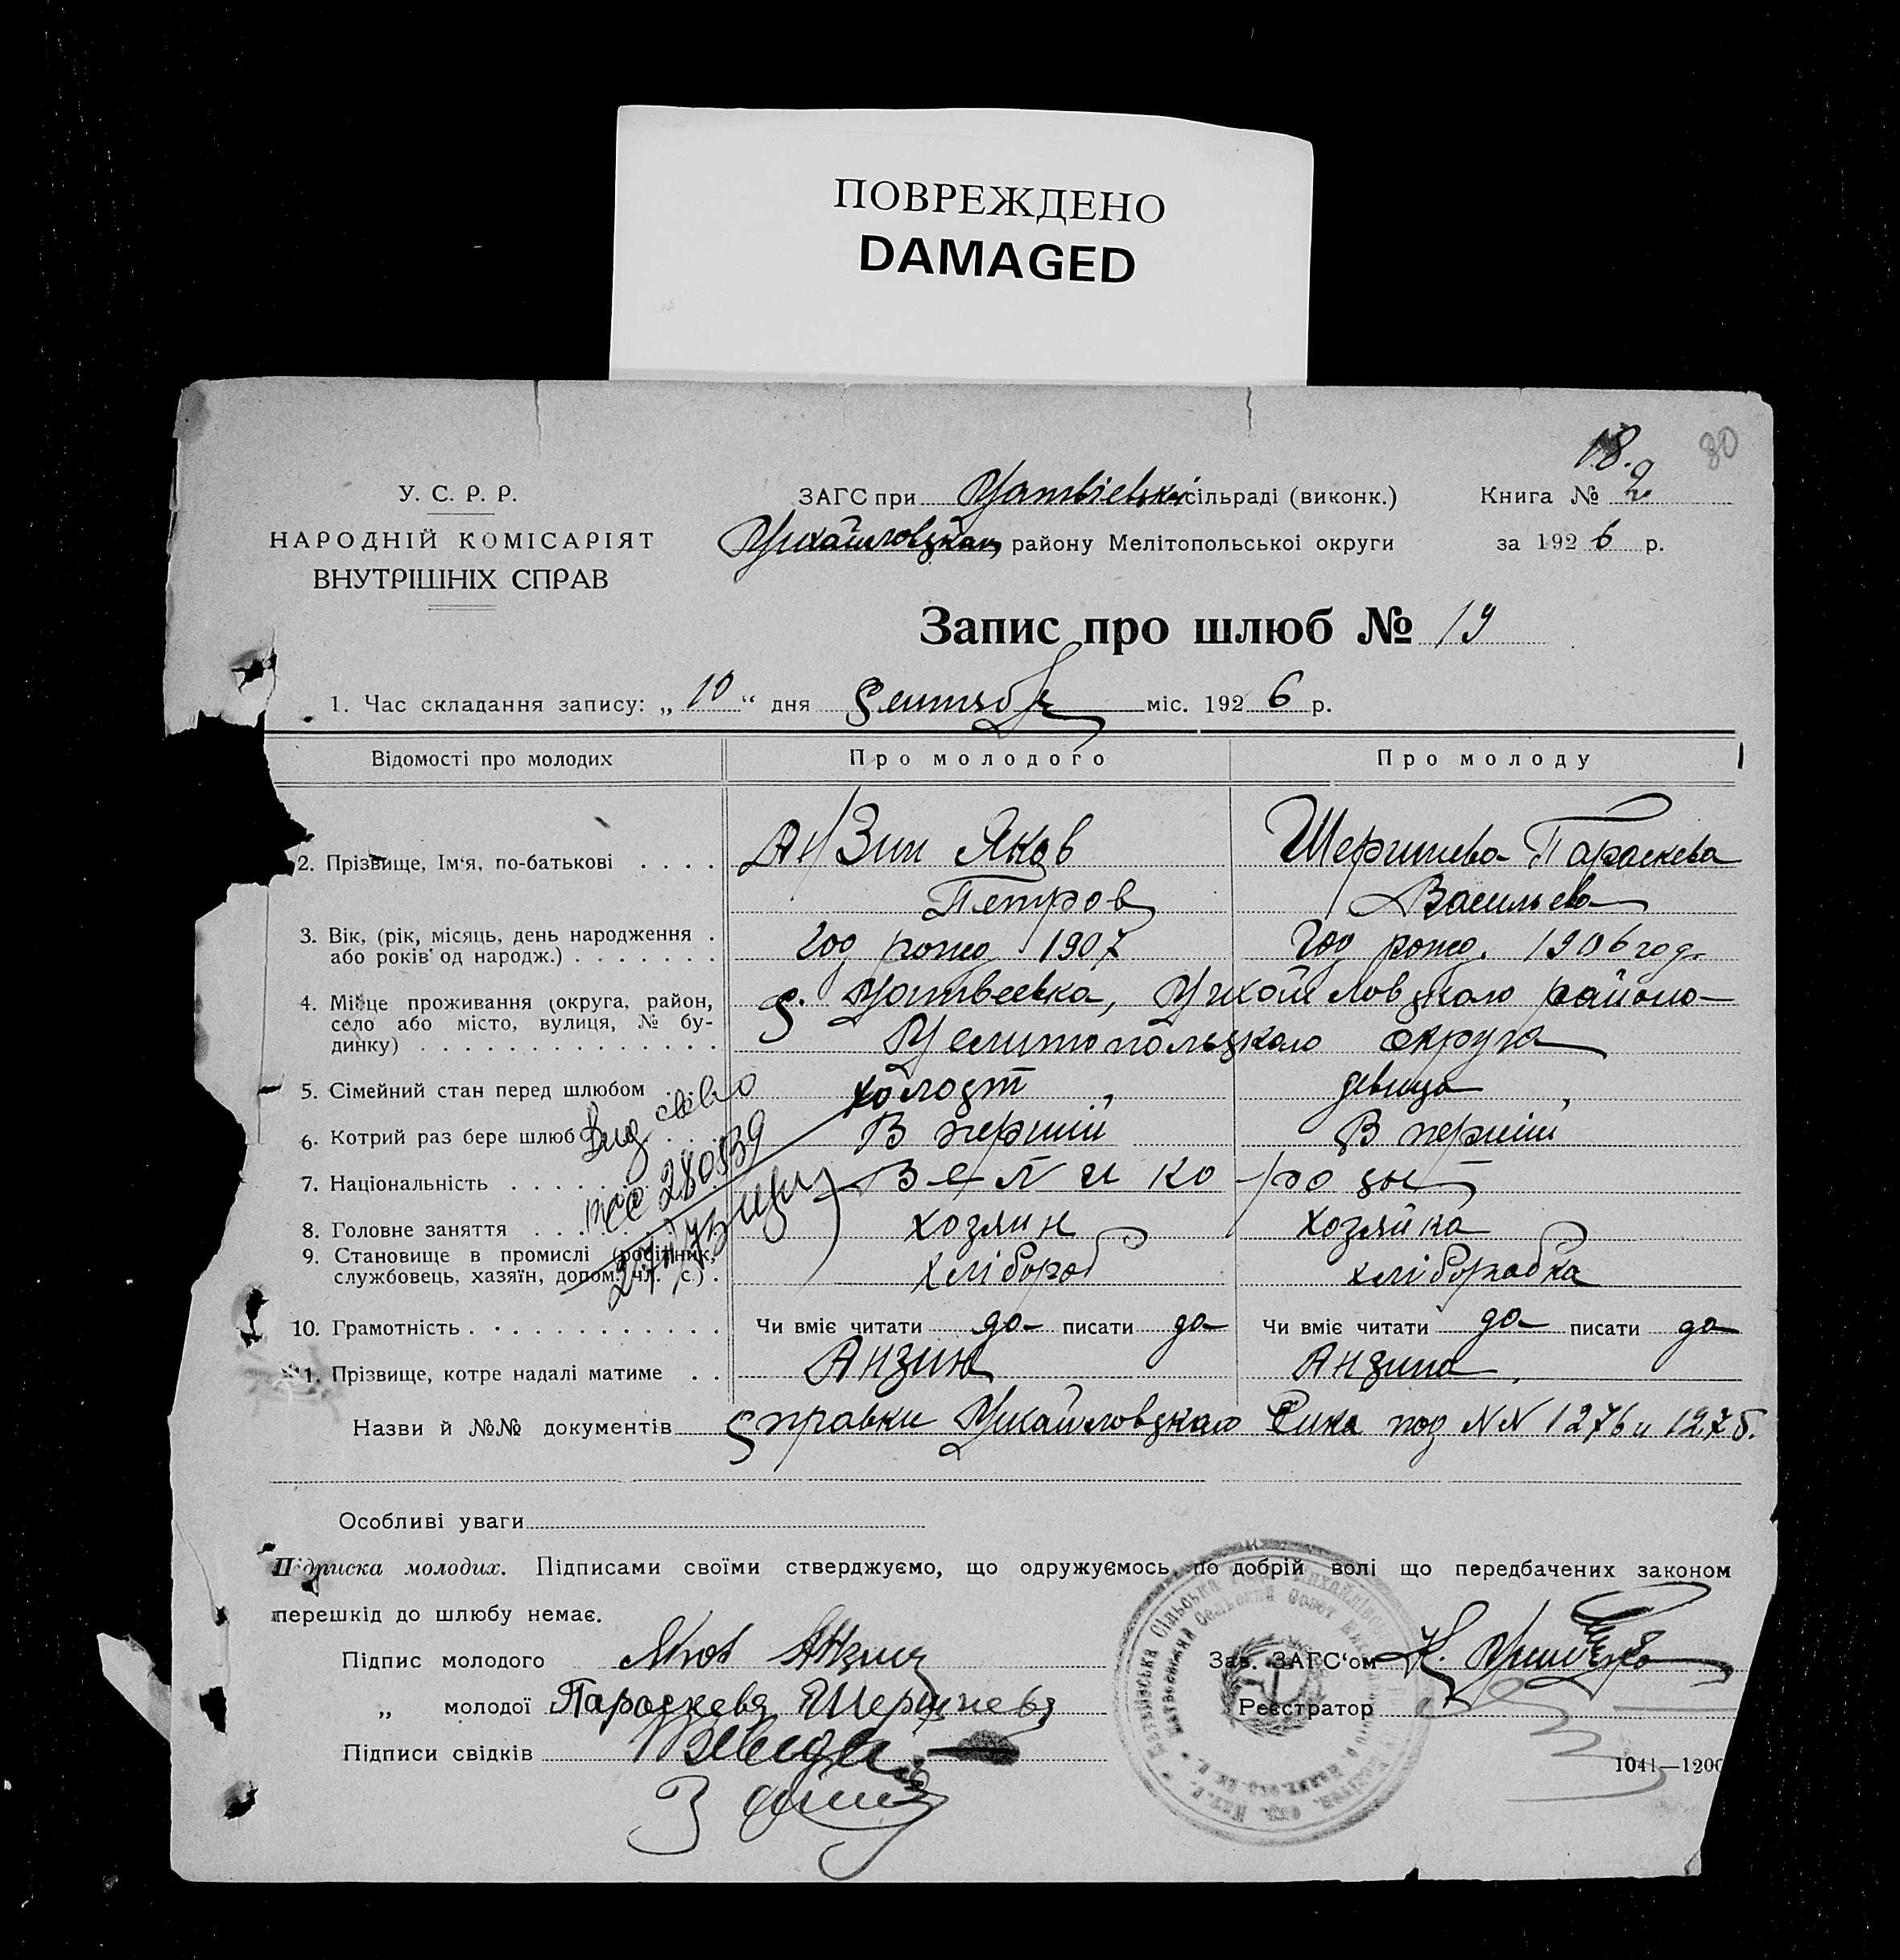 ПОВРЕЖДЕНО
DAMAGED
18.
80
У. С. Р. Р.
НАРОДНІЙ КОМІСАРІЯТ
ВНУТРІШНІХ СПРАВ
ЗАГС при Матвіевській сільраді (виконк.)
Книга № 2
району Мелітопольської округи
за 1926 р.
Запис про шлюб № 19
1. Час складання запису: „ 10 “ дня Сентября міс. 1926 р.
Відомості про молодих
Про молодого
Про молоду
2. Прізвище, Ім‘я, по-батькові
Анзин Яков
Петров
Параскева
Васильева
3. Вік, (рік, місяць, день народження
або років од народж.)
год рожд 1907
год рожд. 1906 год
4. Місце проживання (округа, район,
село або місто, вулиця, № бу-
динку)
с. Матвеевка, Михайловского района
Мелитопольского округа
5. Сімейний стан перед шлюбом
холост
девица
6. Котрий раз бере шлюб
В перший
В перший
7. Національність
Великороссы
8. Головне заняття
хозяин
хозяйка
9. Становище в промислі (робітник,
службовець, хазяїн, допом. чл. с.)
хлібороб
хліборобка
10. Грамотність
Чи вміє читати да писати да
Чи вміє читати да писати да
11. Прізвище, котре надалі матиме
Анзин
Анзина
Назви й №№ документів Справки Михайловского Рика под NN 1276 и 1275.
Особливі уваги
Підписка молодих. Підписами своїми стверджуємо, що одружуємось по добрій волі що передбачених законом
перешкід до шлюбу немає.
Підпис молодого Яков Анзин
Зав. ЗАГС‘ом
„ молодої Параскева
Реєстратор
Підписи свідків
1041—1200